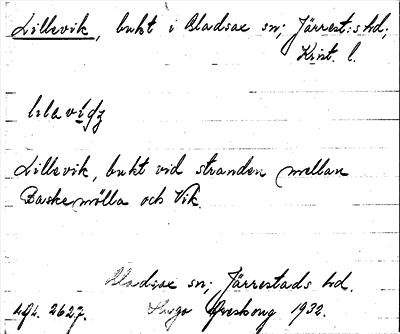 Lillevik, bukt i Bladsax sn; Järrest:s hd;
Krist. l.
Lillevik, bukt vid stranden mellan
Baskemölla och Vik.
Bladsax sn; Järrestads hd.
2627. Hugo Areskoug 1932.